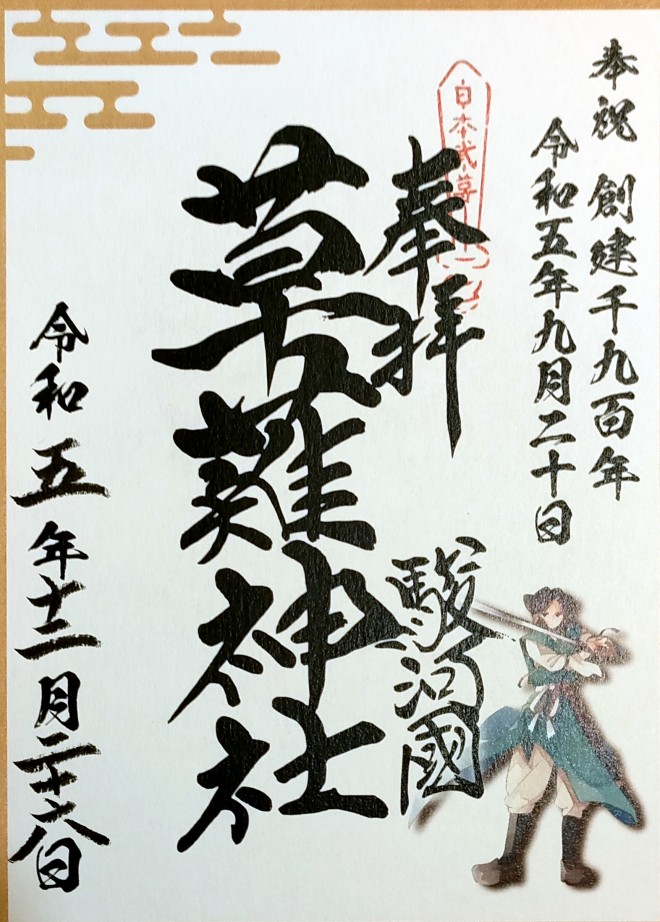 奉祝 創建千九百年
令和五年九月二十日
日本武尊
奉拝
駿河國
草薙神社
令和五年十二月二十六日